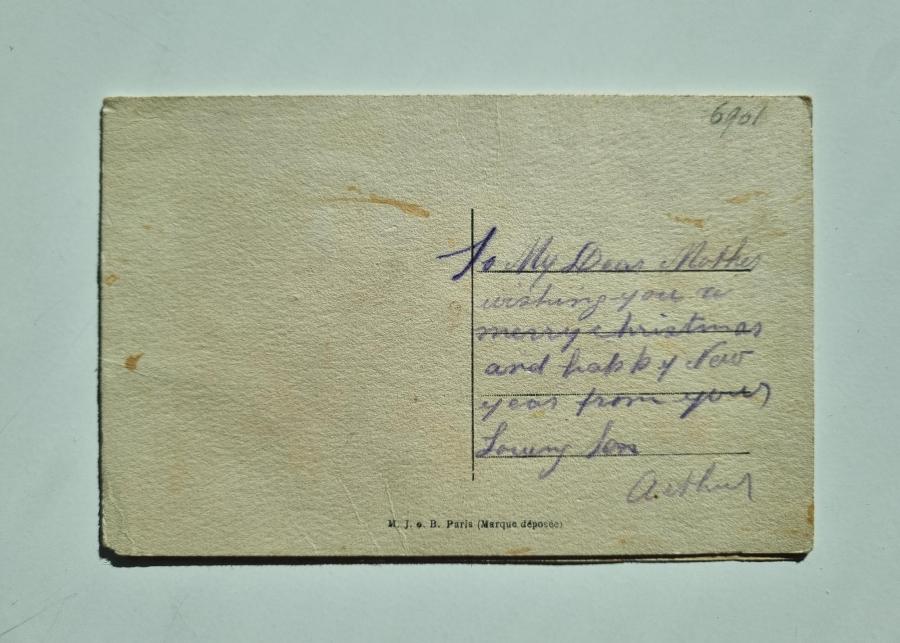 6901
To My Dear Mother
wishing you a
merry christmas
and happy New
year from your
Loving Son
Arthur
M. J. e. B. Paris (Marque déposée)